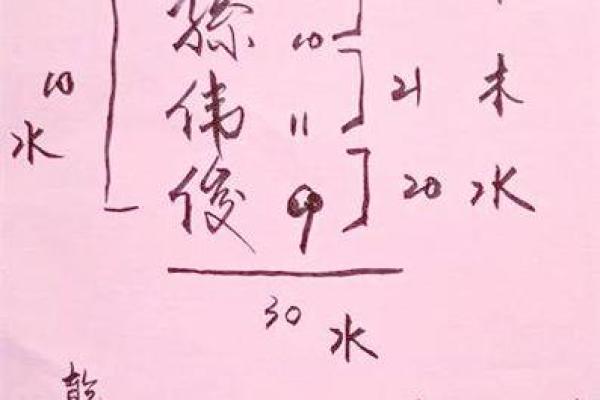 孫 10
10 水
伟 11 21 木
俊 9 20 水
30 水